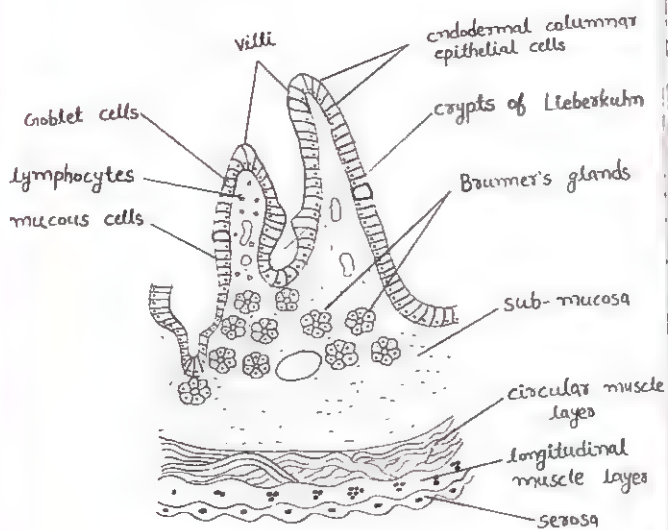 villi
endodermal columnar
epithelial cells
Goblet cells
crypts of Lieberkuhn
lymphocytes
Brunner's glands
mucous cells
sub-mucosa
circular muscle
layer
longitudinal
muscle layer
serosa